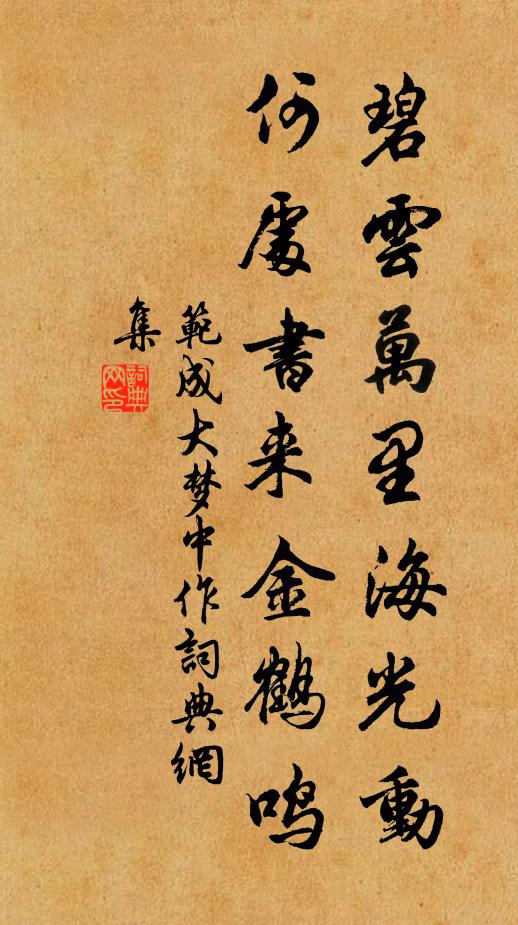 碧雲萬里海光動
何處書来金鶴鳴
範成大梦中作詞典網
集
詞典網印